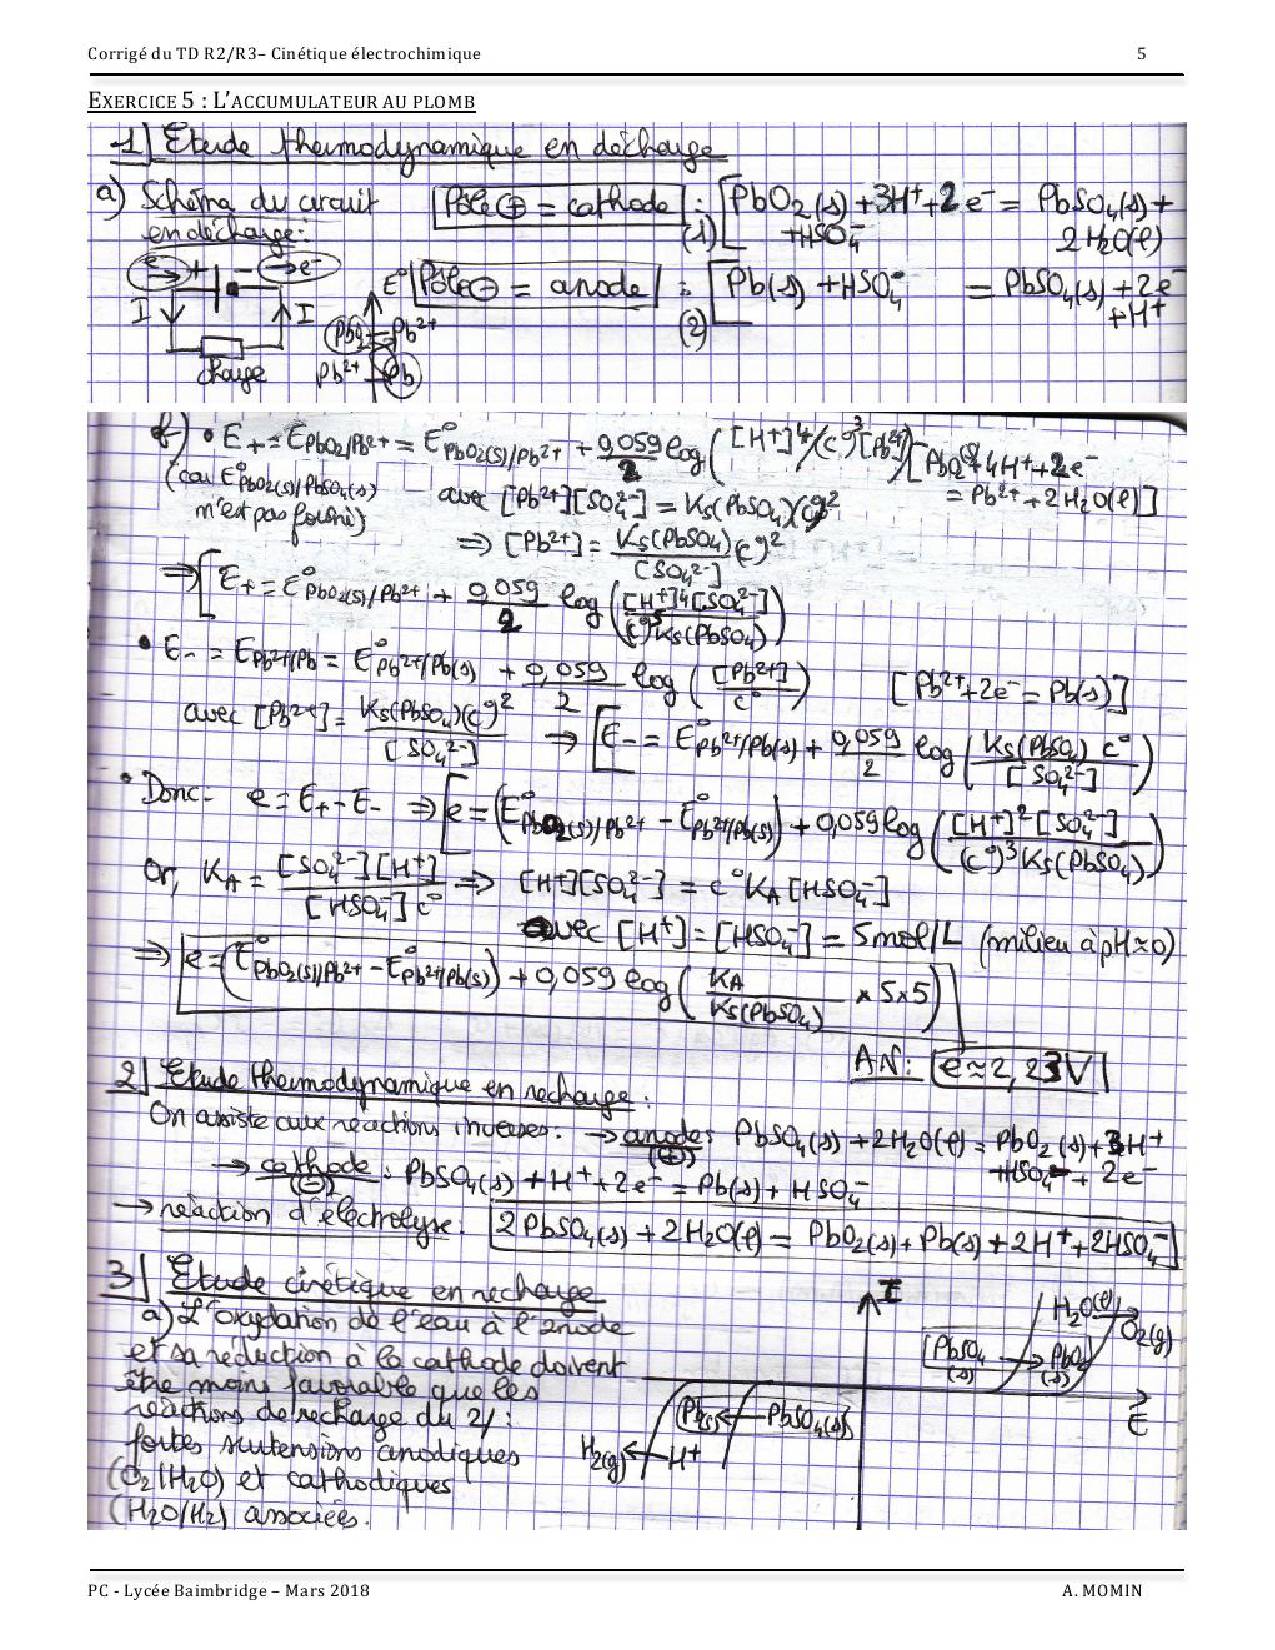 Corrigé du TD R2/R3– Cinétique électrochimique 5
EXERCICE 5 : L'ACCUMULATEUR AU PLOMB
1) Etude thermodynamique en décharge
a) Schéma du circuit en décharge:
Pôle ⊕ = cathode : (1) [PbO2(s) + 3H+ + 2e- + HSO4- = PbSO4(s) + 2H2O(l)
e- → + - → e-
I I
charge
E°
PbO2 Pb2+
Pb2+ Pb
Pôle ⊖ = anode : (2) [Pb(s) + HSO4- = PbSO4(s) + 2e- + H+
b) • E+ = EPbO2/Pb2+ = E°PbO2(s)/Pb2+ + 0,059/2 log([H+]^4/(c°)^3[Pb2+]) [PbO2(s) + 4H+ + 2e- = Pb2+ + 2H2O(l)]
(car E°PbO2(s)/PbSO4(s) n'est pas fourni)
avec [Pb2+][SO42-] = Ks(PbSO4)(c°)^2
⇒ [Pb2+] = Ks(PbSO4)(c°)^2/[SO42-]
⇒ [E+ = E°PbO2(s)/Pb2+ + 0,059/2 log([H+]^4[SO42-]/(c°)^5Ks(PbSO4))
• E- = EPb2+/Pb = E°Pb2+/Pb(s) + 0,059/2 log([Pb2+]/c°) [Pb2+ + 2e- = Pb(s)]
avec [Pb2+] = Ks(PbSO4)(c°)^2/[SO42-] ⇒ [E- = E°Pb2+/Pb(s) + 0,059/2 log(Ks(PbSO4) c°/[SO42-])
• Donc: e = E+ - E- ⇒ [e = (E°PbO2(s)/Pb2+ - E°Pb2+/Pb(s)) + 0,059 log([H+]^2[SO42-]/(c°)^3Ks(PbSO4))
Or, KA = [SO42-][H+]/[HSO4-]c° ⇒ [H+][SO42-] = c°KA[HSO4-]
avec [H+] = [HSO4-] = 5mol/L (milieu à pH≈0)
⇒ e = (E°PbO2(s)/Pb2+ - E°Pb2+/Pb(s)) + 0,059 log(KA/Ks(PbSO4) × 5×5)
AN: e ≈ 2,23V
2) Etude thermodynamique en recharge:
On assiste aux réactions inverses: → anode: (+) PbSO4(s) + 2H2O(l) = PbO2(s) + 3H+ + HSO4- + 2e-
→ cathode: (-) PbSO4(s) + H+ + 2e- = Pb(s) + HSO4-
→ réaction d'électrolyse: 2PbSO4(s) + 2H2O(l) = PbO2(s) + Pb(s) + 2H+ + 2HSO4-
3) Etude cinétique en recharge
a) L'oxydation de l'eau à l'anode
et sa réduction à la cathode doivent
être moins favorable que les
réactions de recharge du 2/:
fortes surtensions anodiques
(O2/H2O) et cathodiques
(H2O/H2) associées.
I
H2O(l) → O2(g)
PbSO4(s) → PbO2(s)
E
Pb(s) ← PbSO4(s)
H2(g) ← H+
PC - Lycée Baimbridge – Mars 2018 A. MOMIN